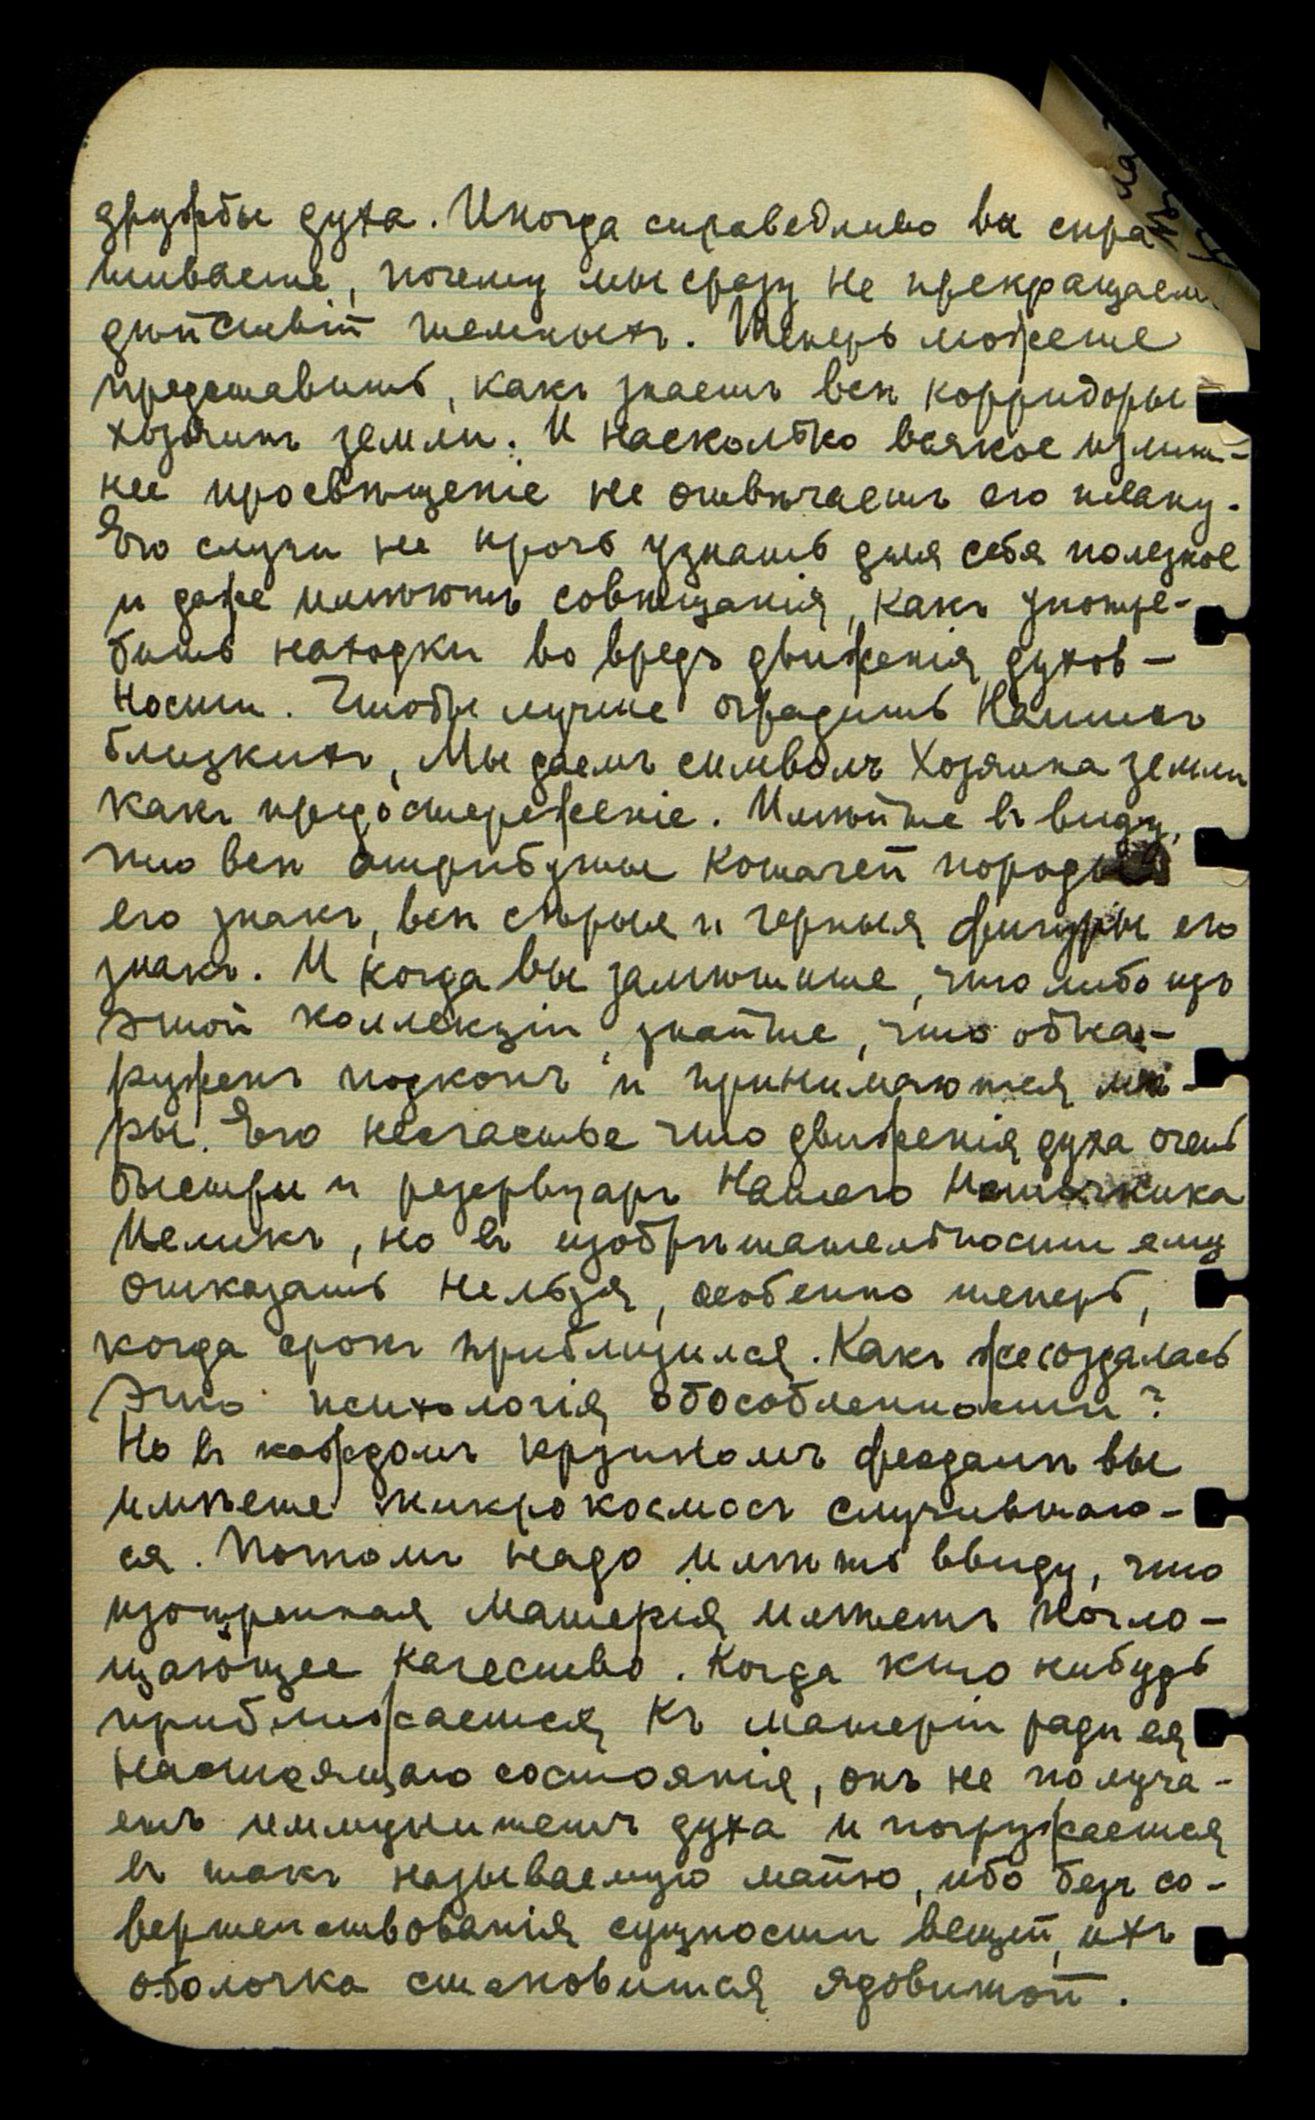 дружбы духа. Иногда справедливо вы спра-
шиваете, почему мы сразу не прекращаем
дѣйствій темныхъ. Теперь можете
представить, какъ знаетъ всѣ корридоры
хозяинъ земли. И насколько всякое излиш-
нее просвѣщеніе не отвѣчаетъ его плану.
Его слуги не прочь узнать для себя полезное
и даже имѣютъ совѣщанія, какъ употре-
бить находки во вредъ движенія духов-
ности. Чтобы лучше оградить Нашихъ
близкихъ, Мы даемъ символъ Хозяина земли
какъ предостереженіе. Имѣйте въ виду,
что всѣ атрибуты кошачей породы
его знакъ, всѣ сѣрыя и черныя фигуры его
знакъ. И когда вы замѣтите, что либо изъ
этой коллекціи, знайте, что обна-
руженъ подкопъ и принимаются мѣ-
ры. Его несчастье что движенія духа очень
быстры и резервуаръ Нашего Источника
великъ, но въ изобрѣтательности ему
отказать нельзя, особенно теперь,
когда срокъ приблизился. Какъ же создалась
эта психологія обособленности?
Но въ каждомъ крупномъ феодалѣ вы
имѣете микрокосмосъ случившаго-
ся. Потомъ надо имѣть ввиду, что
изощренная матерія имѣетъ погло-
щающее качество. Когда кто нибудь
приближается къ матеріи ради ея
настоящаго состоянія, онъ не получа-
етъ иммунитетъ духа и погружается
въ такъ называемую майю, ибо безъ со-
вершенствованія сущности вещей, ихъ
оболочка становится ядовитой.